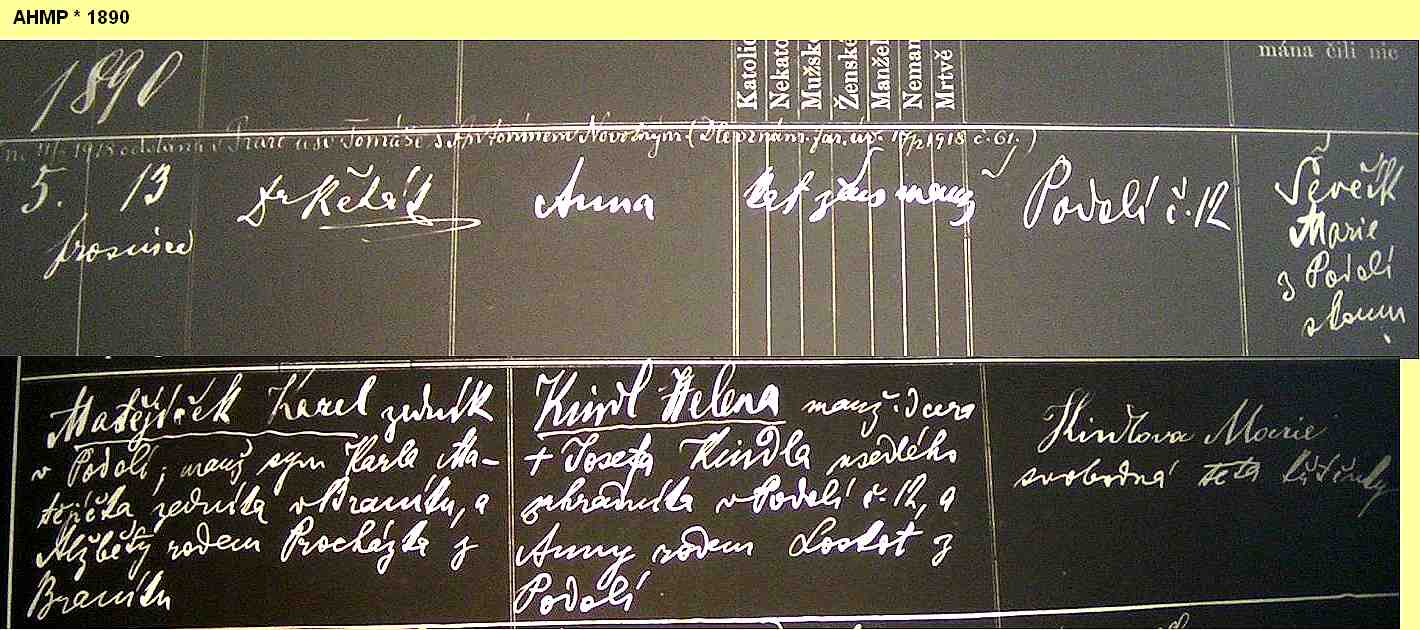 AHMP * 1890
1890
Katolic
Nekato
Mužsk
Ženské
Manžel
Neman
Mrtvě
mána čili nic
1918 v Praze u sv Tomáše s Antonínem Novotným (Dle oznám. far. úř. 1918 č. 61.)
5. 13 Dr Anna kat žens manž Podolí č. 12 Ševčík
prosince
Marie
z Podolí
zkouš
Matějíček Karel zedník
v Podolí; manž syn Karla Ma-
tějíčka zedníka v Braníku, a
Alžběty rodem Procházka z
Braníku
Kindl Helena manž. dcera
+ Josefa Kindla usedlého
v Podolí č. 12, a
Anny rodem Loskot z
Podolí
Kindlova Marie
svobodná teta